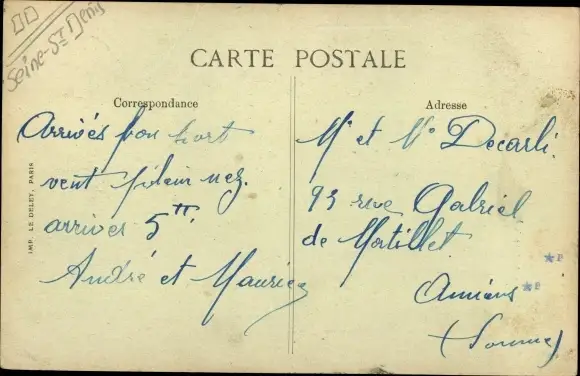 Seine-St Denis
CARTE POSTALE
Correspondance
Arrivés bon port
vent plein nez.
arrivés 5H.
André et Maurice
Adresse
Mr et Me Decarli.
93 rue Gabriel
de Mortillet
Amiens
(Somme)
IMP. LE DELEY, PARIS